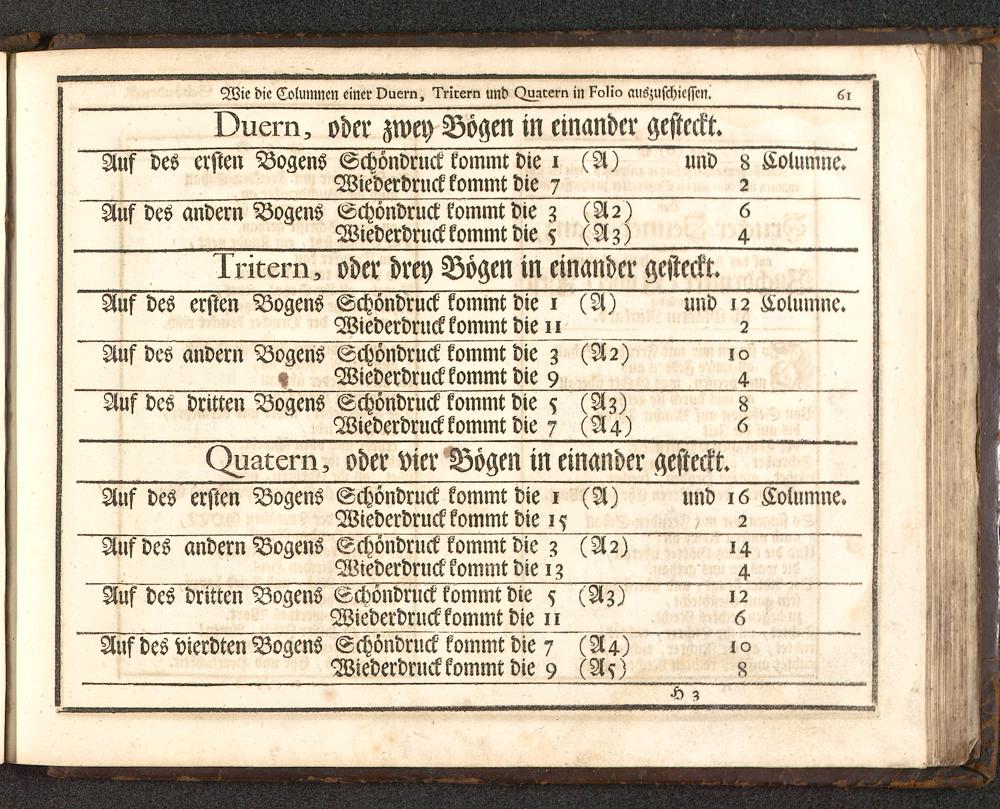 Wie die Columnen einer Duern, Tritern und Quatern in Folio auszuschiessen. 61
Duern, oder zwey Bögen in einander gesteckt.
Auf des ersten Bogens Schöndruck kommt die 1 (A) und 8 Columne.
Wiederdruck kommt die 7 2
Auf des andern Bogens Schöndruck kommt die 3 (A2) 6
Wiederdruck kommt die 5 (A3) 4
Tritern, oder drey Bögen in einander gesteckt.
Auf des ersten Bogens Schöndruck kommt die 1 (A) und 12 Columne.
Wiederdruck kommt die 11 2
Auf des andern Bogens Schöndruck kommt die 3 (A2) 10
Wiederdruck kommt die 9 4
Auf des dritten Bogens Schöndruck kommt die 5 (A3) 8
Wiederdruck kommt die 7 (A4) 6
Quatern, oder vier Bögen in einander gesteckt.
Auf des ersten Bogens Schöndruck kommt die 1 (A) und 16 Columne.
Wiederdruck kommt die 15 2
Auf des andern Bogens Schöndruck kommt die 3 (A2) 14
Wiederdruck kommt die 13 4
Auf des dritten Bogens Schöndruck kommt die 5 (A3) 12
Wiederdruck kommt die 11 6
Auf des vierdten Bogens Schöndruck kommt die 7 (A4) 10
Wiederdruck kommt die 9 (A5) 8
H 3